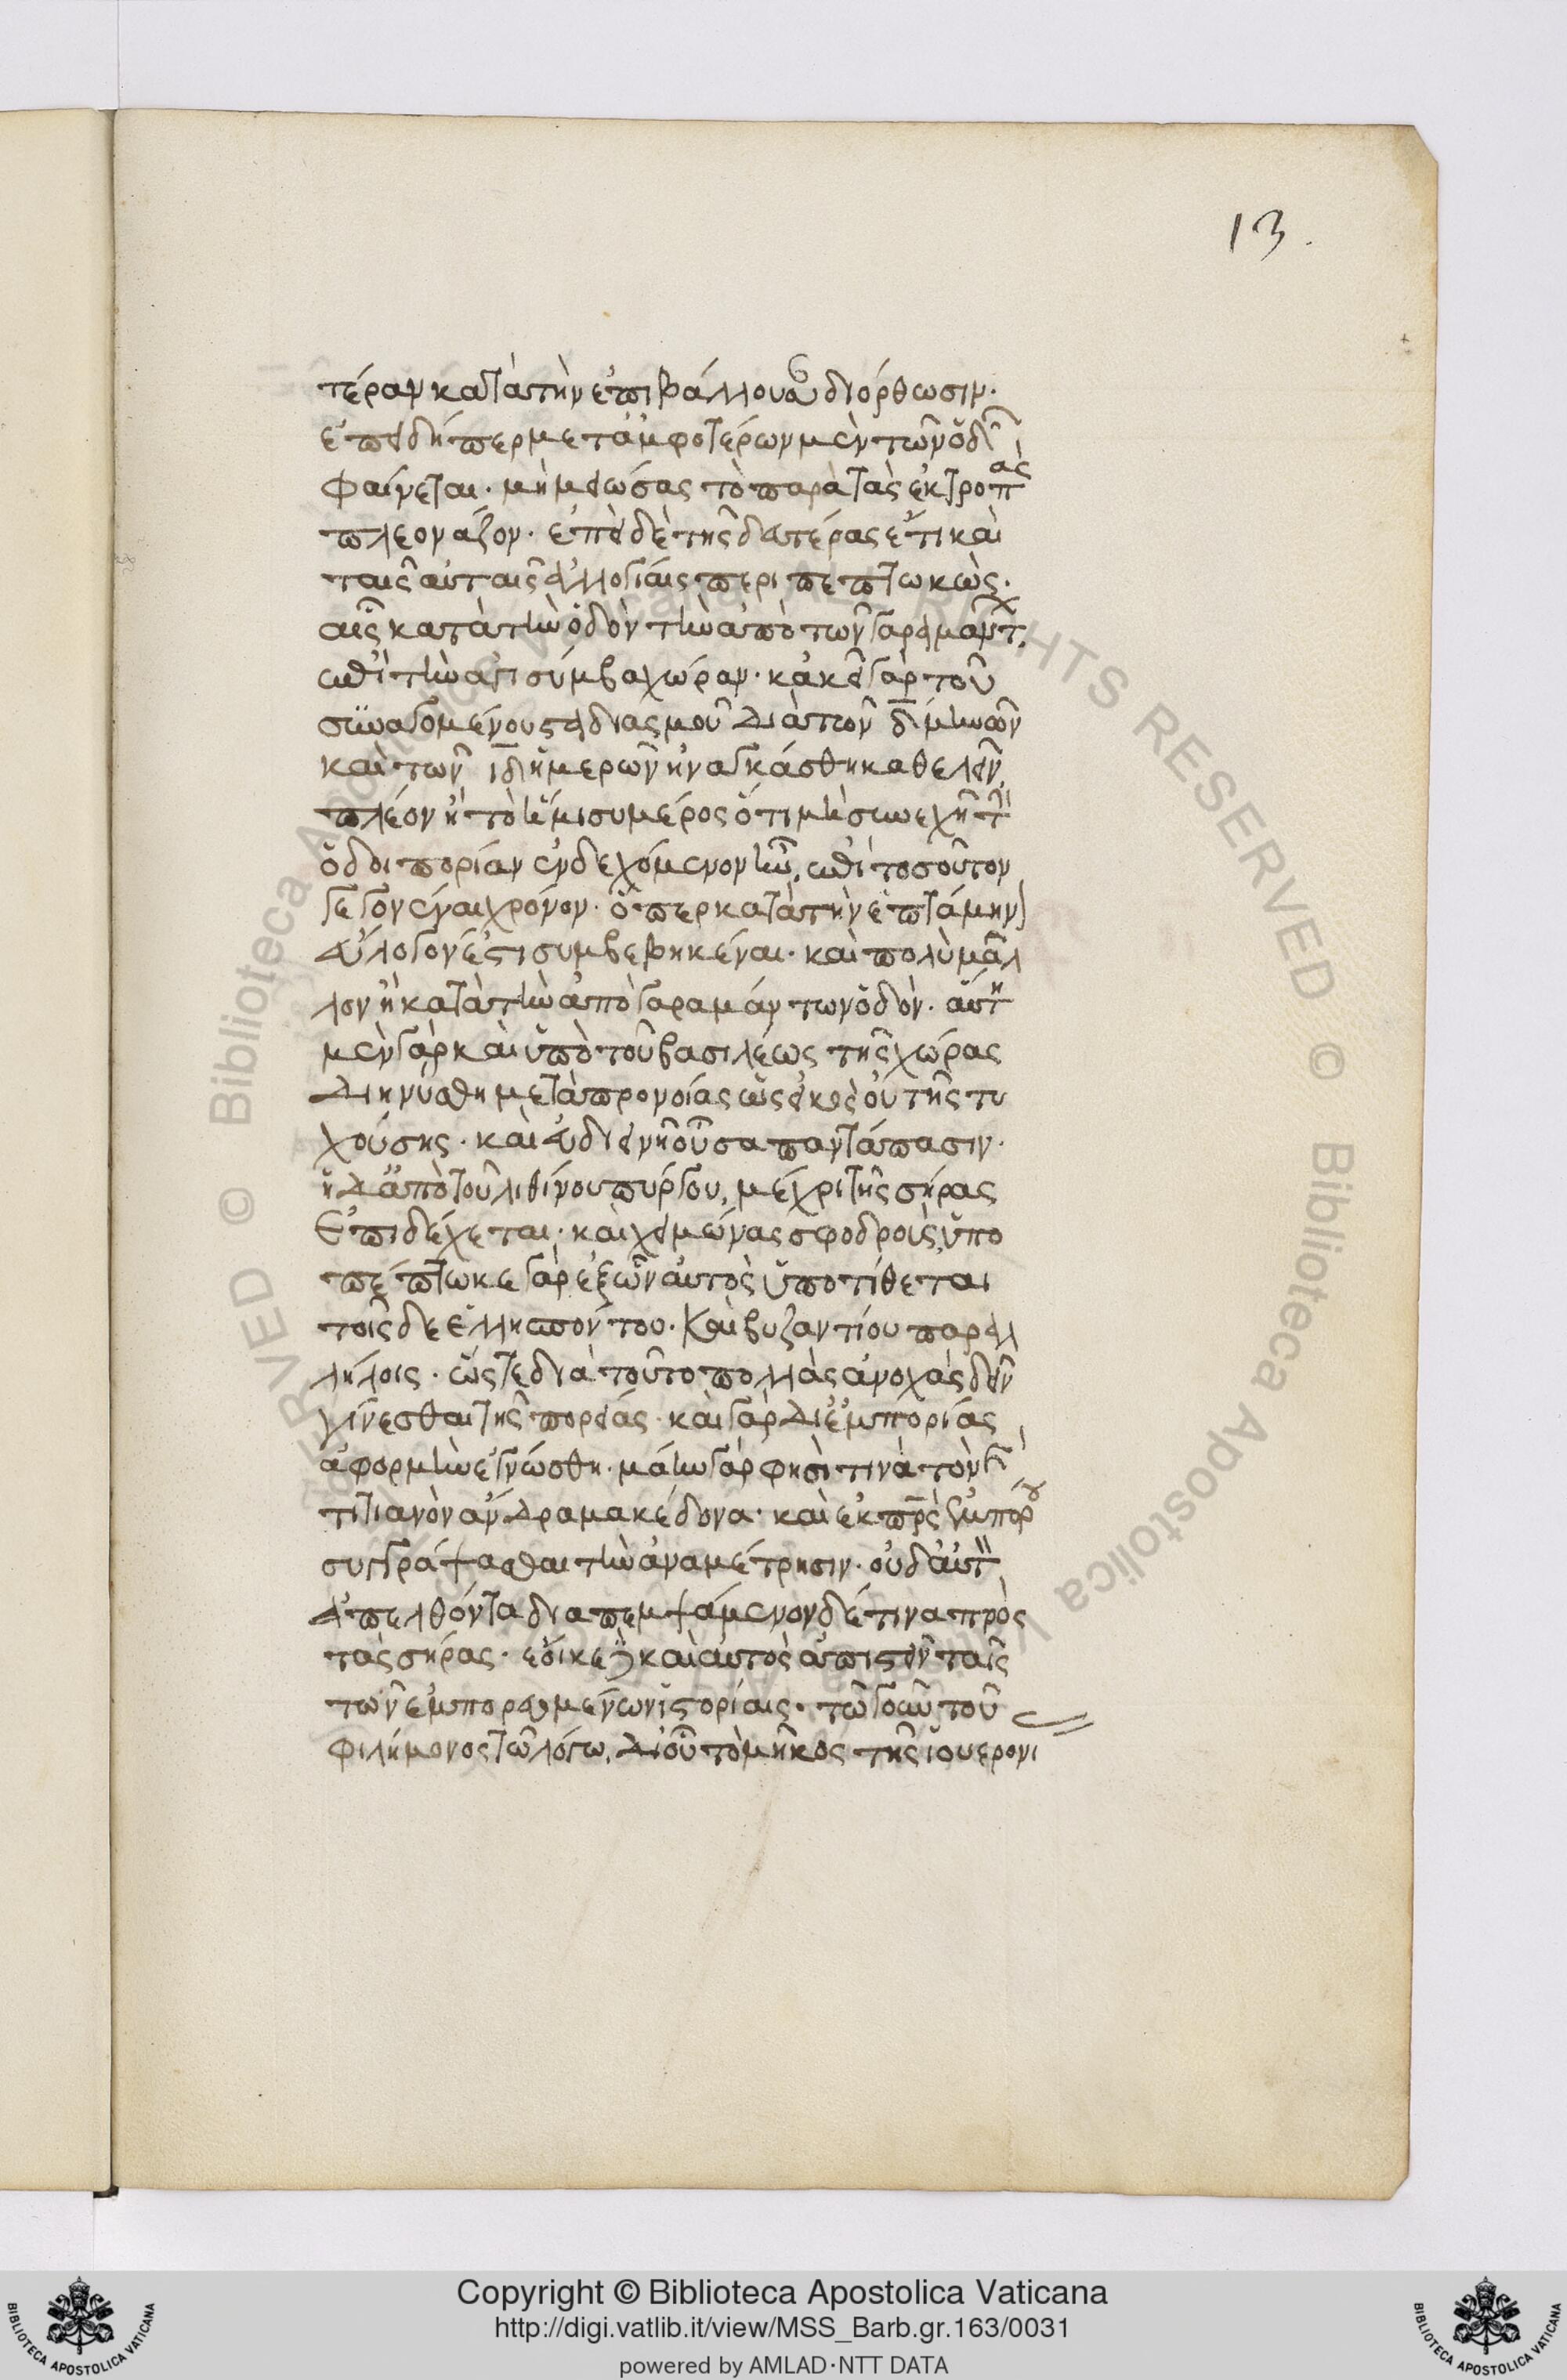 τέραν κατὰ τὴν ἐπιβάλλουσαν διόρθωσιν·
ἐπειδήπερ μετ ἀμφοτέρων μὲν τῶν ὁδῶν
φαίνεται· μὴ μειώσας τὸ παρὰ τὰς ἐκτροπὰς
πλεονάζον· ἐπεὶ δὲ τῆς δευτέρας ἔτι καὶ
ταῖς αὐταῖς ἀλλογίαις περιπεπτωκὼς·
αἷς κατὰ τὴν ὁδὸν τὴν ἀπὸ τῶν γαραμάντ
ἐπὶ τὴν ἀγισύμβα χώραν· κἀκεῖ γὰρ τοῦ
συναγομένου σταδιασμοῦ διὰ τῶν δ μηνῶν
καὶ τῶν ιδ ἡμερῶν ἠναγκάσθη καθελεῖν
πλέον ἢ τὸ ἥμισυ μέρος ὅτι μὴ συνεχῆ τὴν
ὁδοιπορίαν ἐνδεχόμενον ἦν, ἐπὶ τοσοῦτον
γεγονέναι χρόνον· ὅπερ κατὰ τὴν ἑπτάμην
εὔλογον ἔστι συμβεβηκέναι· καὶ πολὺ μᾶλ
λον ἢ κατὰ τὴν ἀπὸ γαραμάντων ὁδόν· αὕτη
μὲν γὰρ καὶ ὑπὸ τοῦ βασιλέως τῆς χώρας
διηνύσθη μετὰ προνοίας ὡς εἰκὸς οὐ τῆς τυ
χούσης· καὶ εὐδιεινὴ οὖσα παντάπασιν·
ἡ δ ἀπὸ τοῦ λιθίνου πύργου, μέχρι τῆς σήρας
Ἐπιδέχεται· καὶ χειμῶνας σφοδροὺς, ὑπο
πέπτωκε γὰρ ἐξ ὧν αὐτὸς ὑποτίθεται
τοῖς δε ἑλλησπόντου· καὶ βυζαντίου παραλ
λήλοις· ὥστε διὰ τοῦτο πολλὰς ἀνοχὰς δεῖν
γίνεσθαι τῆς πορείας· καὶ γὰρ δι ἐμπορίας
ἀφορμὴν ἐγνώσθη· μάην γάρ φησί τινὰ τὸν κ
τιτιανὸν ἄνδρα μακέδονα· καὶ ἐκ πρς ἔμπορου
συγγράψασθαι τὴν ἀναμέτρησιν· οὐδ αὐτ
ἀπελθόντα διαπεμψάμενον δέ τινα πρὸς
τὰς σήρας· ἔοικε καὶ αὐτὸς ἀπιστεῖν ταῖς
τῶν ἐμπορευμένων ἱστορίαις· τῶ γοῦν τοῦ
φιλήμονος τῶ λόγω, δι οὗ τὸ μῆκος τῆς ἰουερονι
13.